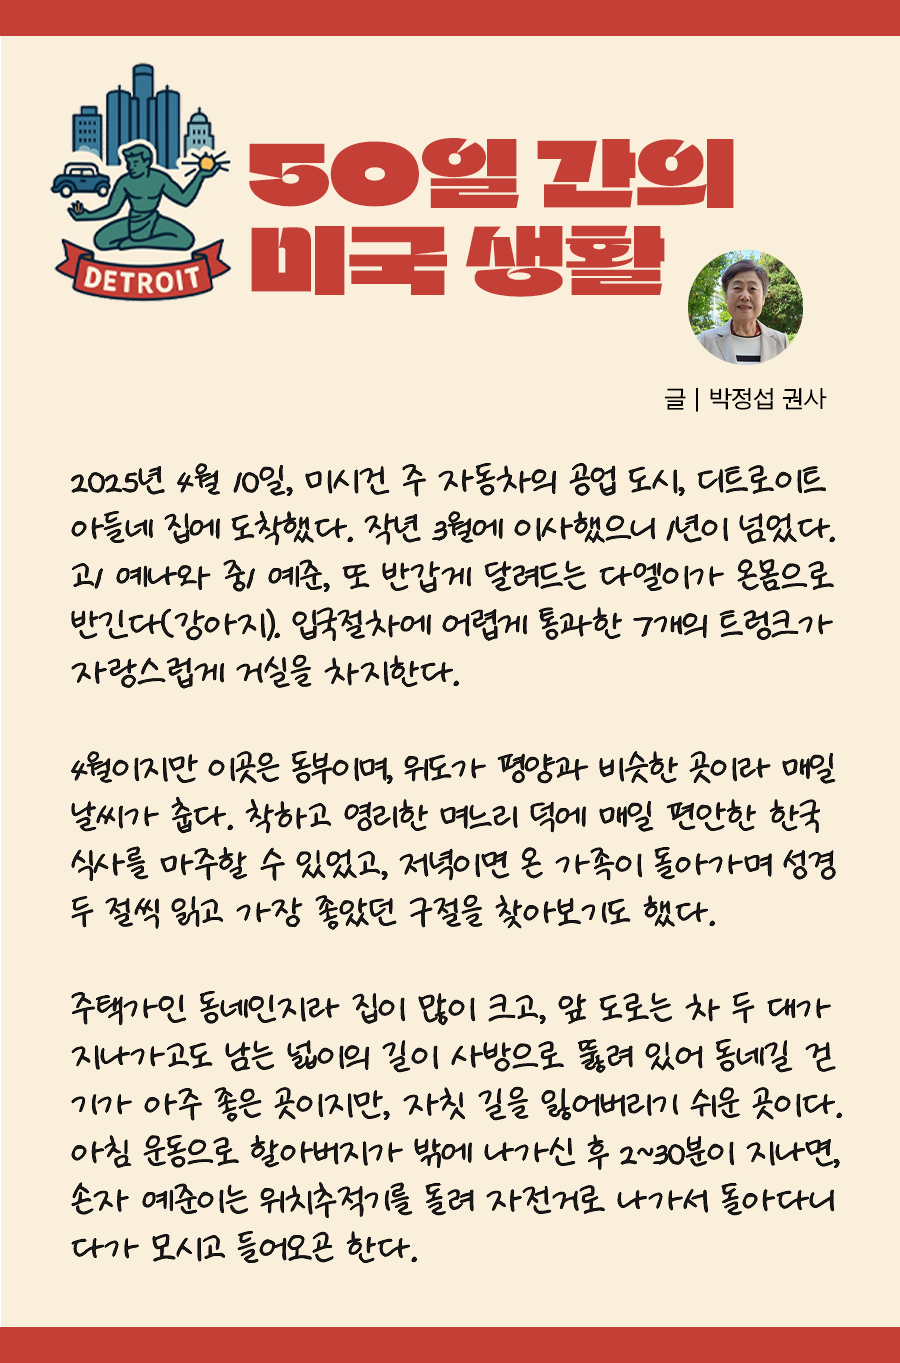 DETROIT
50일 간의
미국 생활
글 | 박정섭 권사
2025년 4월 10일, 미시건 주 자동차의 공업 도시, 디트로이트
아들네 집에 도착했다. 작년 3월에 이사했으니 1년이 넘었다.
고1 예나와 중1 예준, 또 반갑게 달려드는 다엘이가 온몸으로
반긴다(강아지). 입국절차에 어렵게 통과한 7개의 트렁크가
자랑스럽게 거실을 차지한다.
4월이지만 이곳은 동부이며, 위도가 평양과 비슷한 곳이라 매일
날씨가 춥다. 착하고 영리한 며느리 덕에 매일 편안한 한국
식사를 마주할 수 있었고, 저녁이면 온 가족이 돌아가며 성경
두 절씩 읽고 가장 좋았던 구절을 찾아보기도 했다.
주택가인 동네인지라 집이 많이 크고, 앞 도로는 차 두 대가
지나가고도 남는 넓이의 길이 사방으로 뚫려 있어 동네길 걷
기가 아주 좋은 곳이지만, 자칫 길을 잃어버리기 쉬운 곳이다.
아침 운동으로 할아버지가 밖에 나가신 후 2~30분이 지나면,
손자 예준이는 위치추적기를 돌려 자전거로 나가서 돌아다니
다가 모시고 들어오곤 한다.